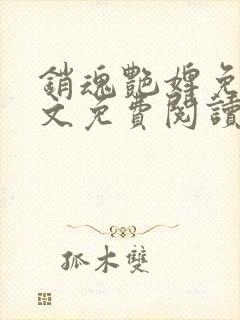 銷魂艷婢免
文免費閱讀
孤木雙